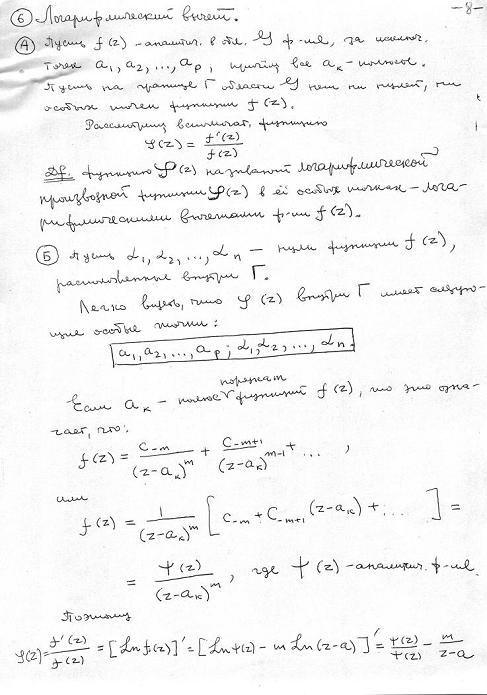 -8-
⑥ Логарифмический вычет.
Ⓐ Пусть f(z) - аналитич. в обл. G ф-ия, за исключ.
точек a₁, a₂, ..., aₚ, причём все aₖ - полюсы.
Пусть на границе Γ области G нет ни нулей, ни
особых точек функции f(z).
Рассмотрим вспомогат. функцию
φ(z) = f'(z)/f(z)
Df. Функцию φ(z) называют логарифмической
производной функции φ(z) в её особых точках - лога-
рифмическими вычетами ф-ии f(z).
Ⓑ Пусть α₁, α₂, ..., αₙ - нули функции f(z),
расположенные внутри Γ.
Легко видеть, что φ(z) внутри Γ имеет следую-
щие особые точки:
a₁, a₂, ..., aₚ; α₁, α₂, ..., αₙ.
Если aₖ - полюс функции f(z), то это озна-
чает, что:
f(z) = C₋ₘ/(z-aₖ)ᵐ + C₋ₘ₊₁/(z-aₖ)ᵐ⁻¹ + ... ,
или
f(z) = 1/(z-aₖ)ᵐ [C₋ₘ + C₋ₘ₊₁(z-aₖ) + ... ] =
= ψ(z)/(z-aₖ)ᵐ, где ψ(z) - аналитич. ф-ия.
Поэтому
φ(z) = f'(z)/f(z) = [Ln f(z)]' = [Ln ψ(z) - m Ln(z-a)]' = ψ(z)/ψ(z) - m/(z-a)